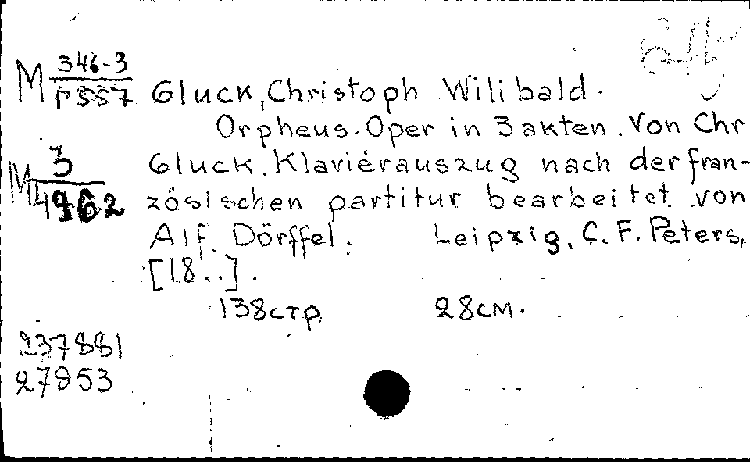 M 346-3
Г 557
Gluck, Christoph Wilibald.
Orpheus. Oper in 3 akten. Von Chr
M 3
4962
Gluck. Klavierauszug nach der fran-
zösischen partitur bearbeitet von
Alf. Dörffel. Leipzig, C. F. Peters,
[18..].
138стр 28см.
237881
27853